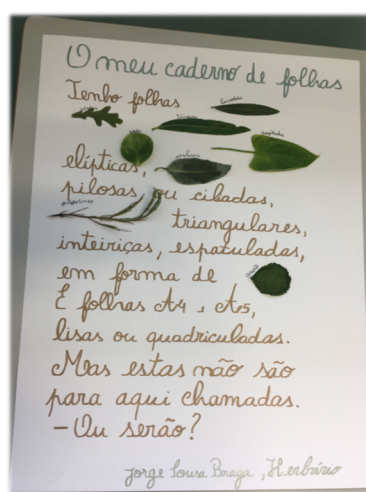 O meu caderno de folhas
Tenho folhas
elípticas,
pilosas, ou ciliadas,
triangulares,
inteiriças, espatuladas,
em forma de
E folhas A4 e A5,
lisas ou quadriculadas.
Mas estas não são
para aqui chamadas.
– Ou serão?
Jorge Sousa Braga, Herbário